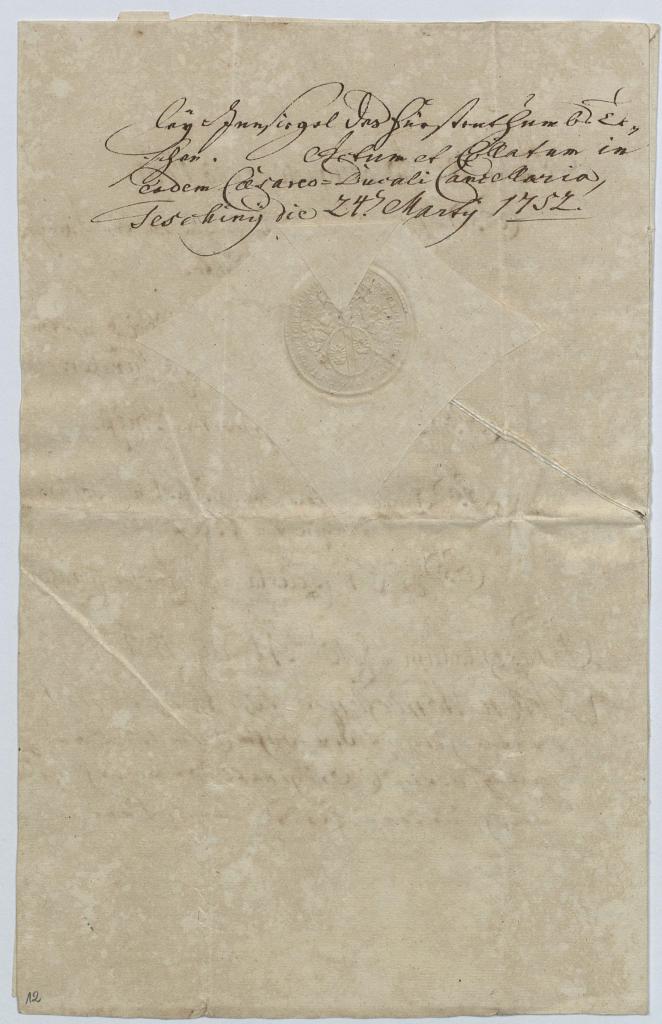 ley Innsiegel des Fürstenthumbs Te,,
schen. Actum et Collatum in
eadem Cæsareo=Ducali Cancellaria,
Teschinij die 24t. Martij 1752.
12